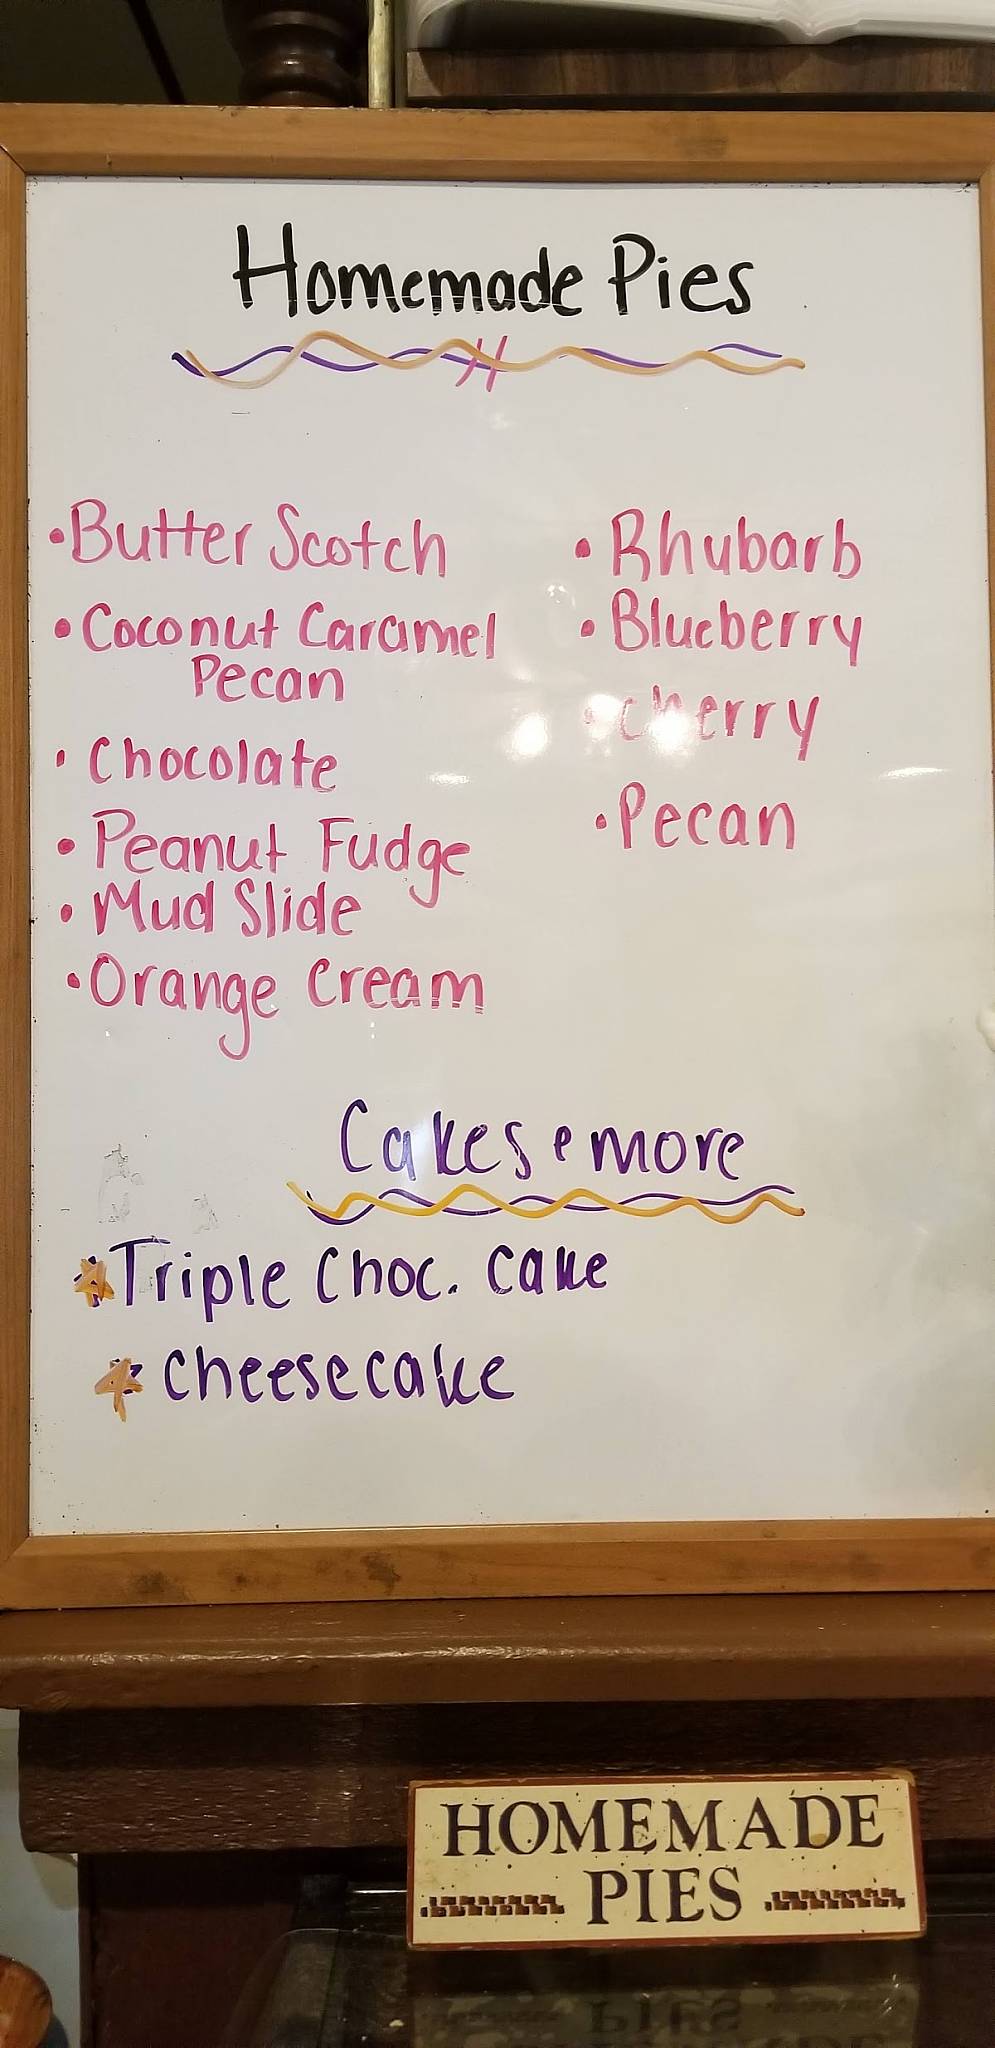 Homemade Pies
• Butter Scotch
• Coconut Caramel
Pecan
• Chocolate
• Peanut Fudge
• Mud Slide
• Orange Cream
• Rhubarb
• Blueberry
• Cherry
• Pecan
Cakes & more
Triple Choc. Cake
Cheesecake
HOMEMADE
PIES